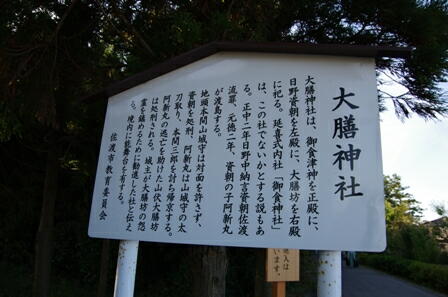 大膳神社
大膳神社は、御食津神を正殿に、
日野資朝を左殿に、大膳坊を右殿
に祀る。延喜式内社「御食神社」
は、この社でないかとする説もあ
る。正中二年日野中納言資朝佐渡
流罪、元徳二年、資朝の子阿新丸
が渡島する。
地頭本間山城守は対面を許さず、
資朝を処刑、阿新丸は山城守の太
刀取り、本間三郎を討ち帰京する。
阿新丸の逃亡を助けた山伏大膳坊
は処刑される。城主が大膳坊の怨
霊を鎮めるために勧進した社と伝え
る。境内に能舞台を有する。
佐渡市教育委員会
入は
います。